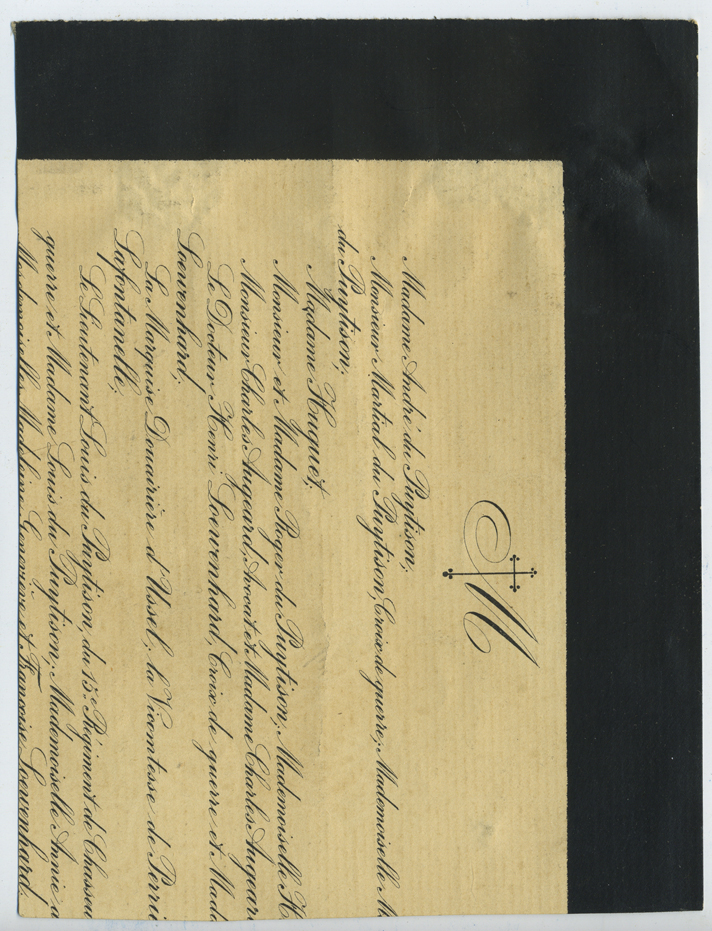 M
Madame André du Puytison,
Monsieur Martial du Puytison, Croix de guerre, Mademoiselle M
du Puytison,
Madame Huguet,
Monsieur et Madame Roger du Puytison, Mademoiselle H
Monsieur Charles Angeard, Avocat et Madame Charles Angeard
Le Docteur Henri Loewenhard, Croix de guerre et Mada
Loewenhard,
La Marquise Douairière d'Ussel, la Vicomtesse de Perri
Lafontanelle,
Le Lieutenant Louis du Puytison, du 15e Régiment de Chasseu
guerre et Madame Louis du Puytison, Mademoiselle Annie d
et Françoise Loewenhard,